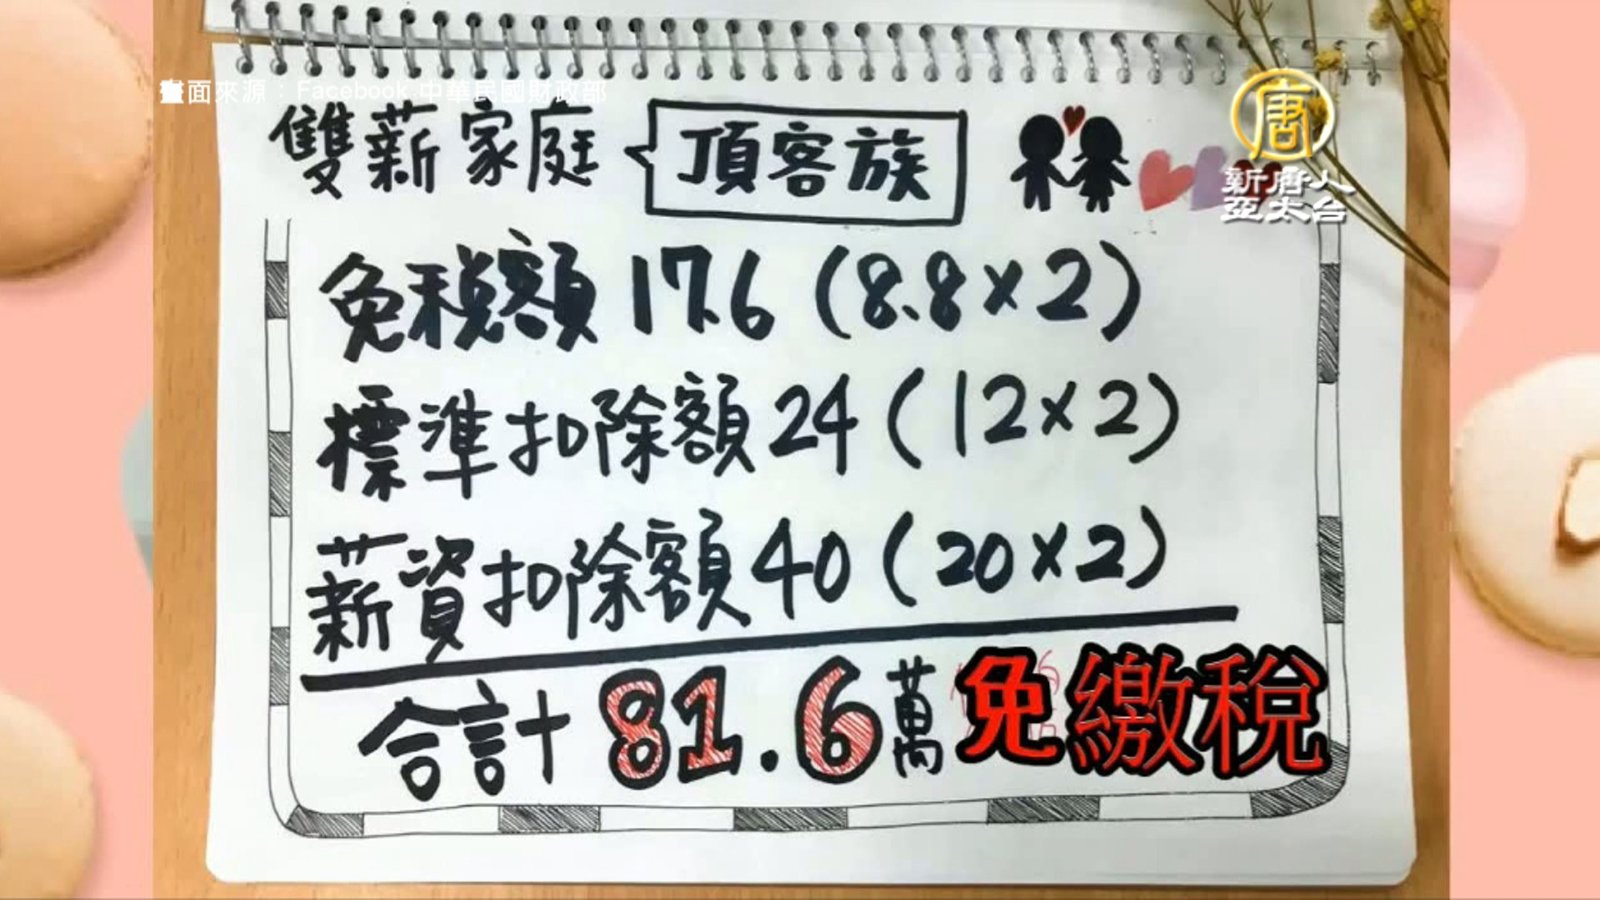 畫面來源：Facebook 中華民國財政部
雙薪家庭 頂客族
唐
新唐人
亞太台
免稅額 17.6 (8.8×2)
標準扣除額 24 (12×2)
薪資扣除額 40 (20×2)
合計 81.6萬 免繳稅